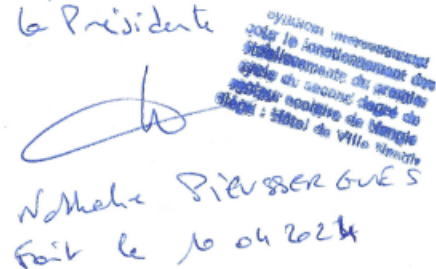 La Présidente
Syndicat intercommunal
pour le fonctionnement des
établissements du premier
cycle du second degré du
secteur scolaire de
siège : Hôtel de Ville
Nathalie PIEUSSERGUES
Fait le 10 04 2024